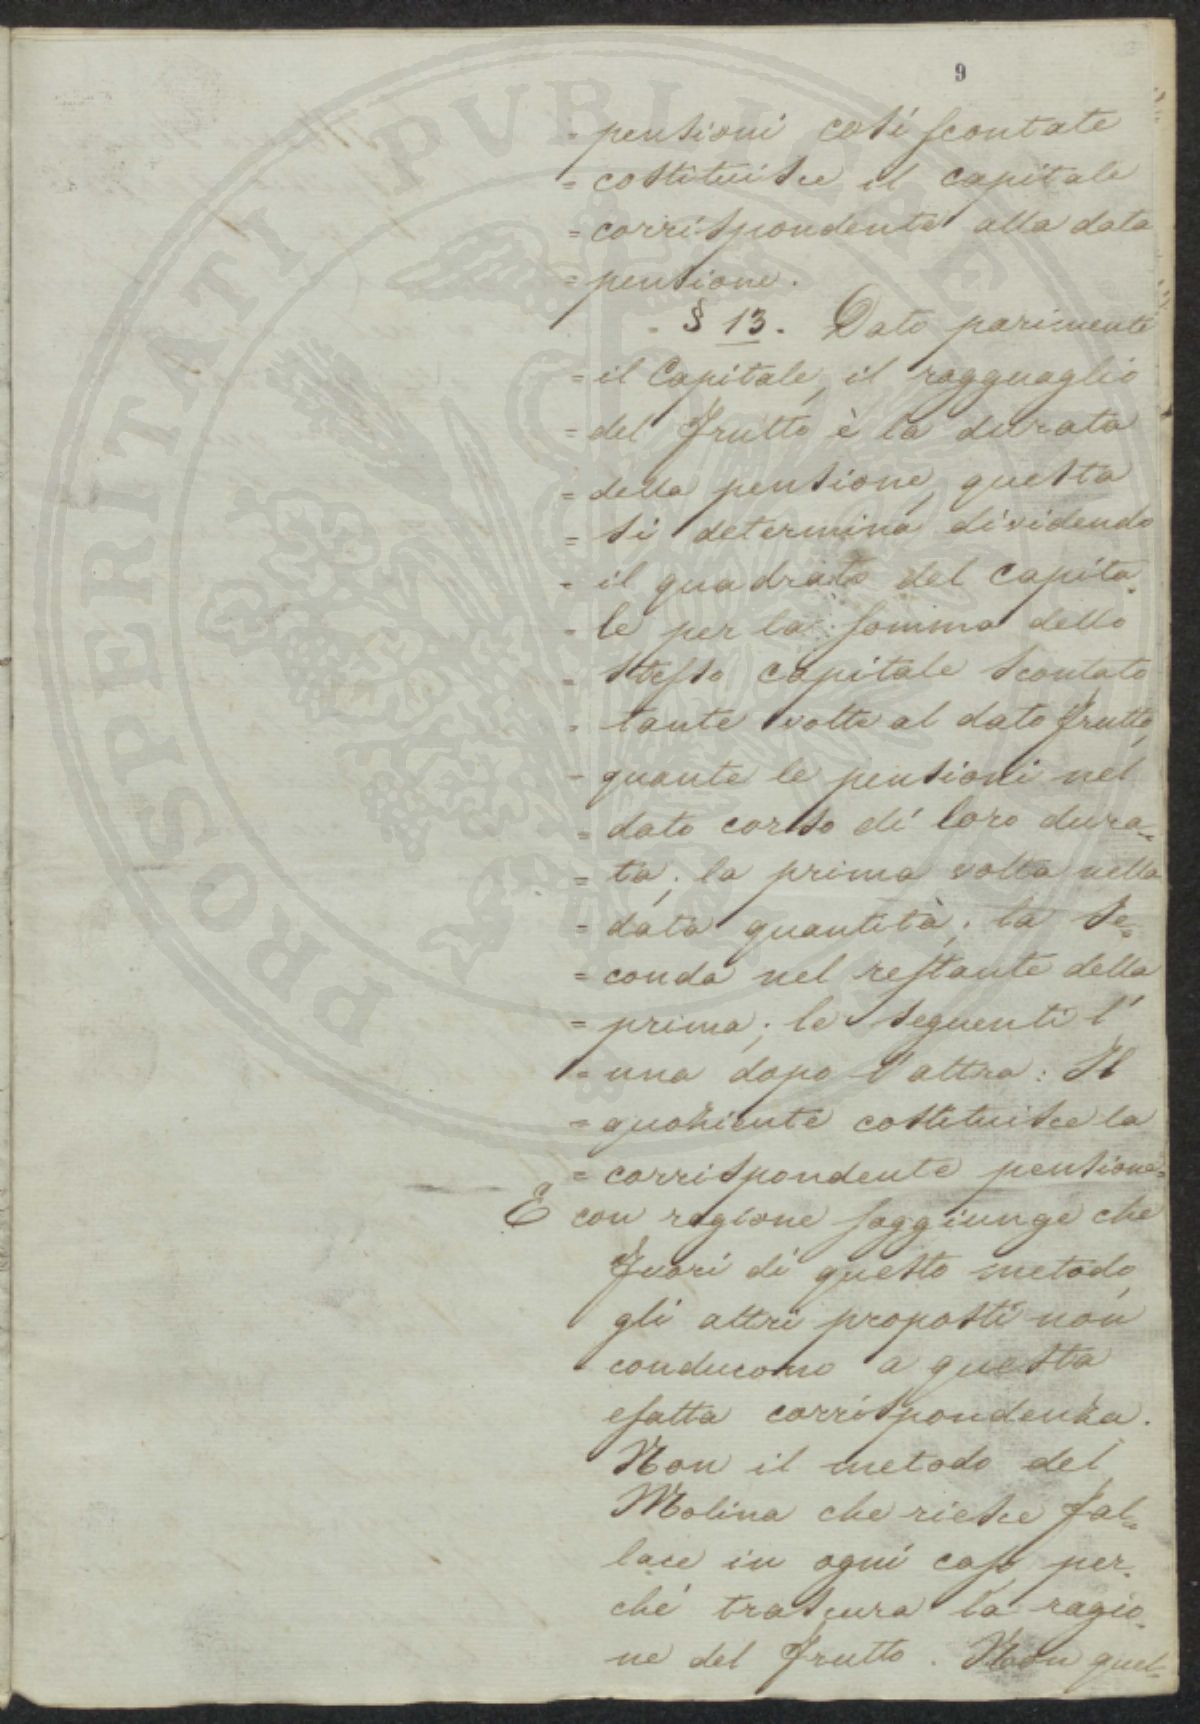 9
= pensioni così scontate
= costituisce il capitale
= corrispondente alla data
= pensione.
= § 13. Dato parimente
= il Capitale, il ragguaglio
= del frutto è la durata
= della pensione, questa
= si determina dividendo
= il quadrato del capita-
= le per la somma dello
= stesso capitale scontato
= tante volte al dato frutto,
= quante le pensioni nel
= dato corso di loro dura=
= ta; la prima volta nella
= data quantità; la se=
= conda nel restante della
= prima; le seguenti l'
= una dopo l'altra: Il
= quoziente costituisce la
= corrispondente pensione=
E con ragione soggiunge che
fuori di questo metodo,
gli altri proposti non
conducono a questa
esatta corrispondenza.
Non il metodo del
Molina che riesce fal=
lace in ogni caso, per-
ché trascura la ragio-
ne del frutto. Non quel=
PROSPERITATI PVBLICAE